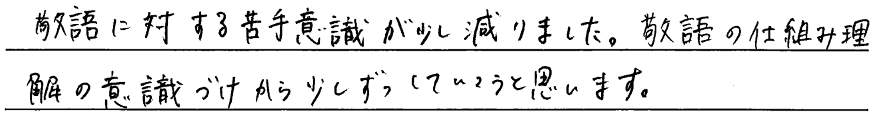 敬語に対する苦手意識が少し減りました。敬語の仕組み理
解の意識づけから少しずつしていこうと思います。